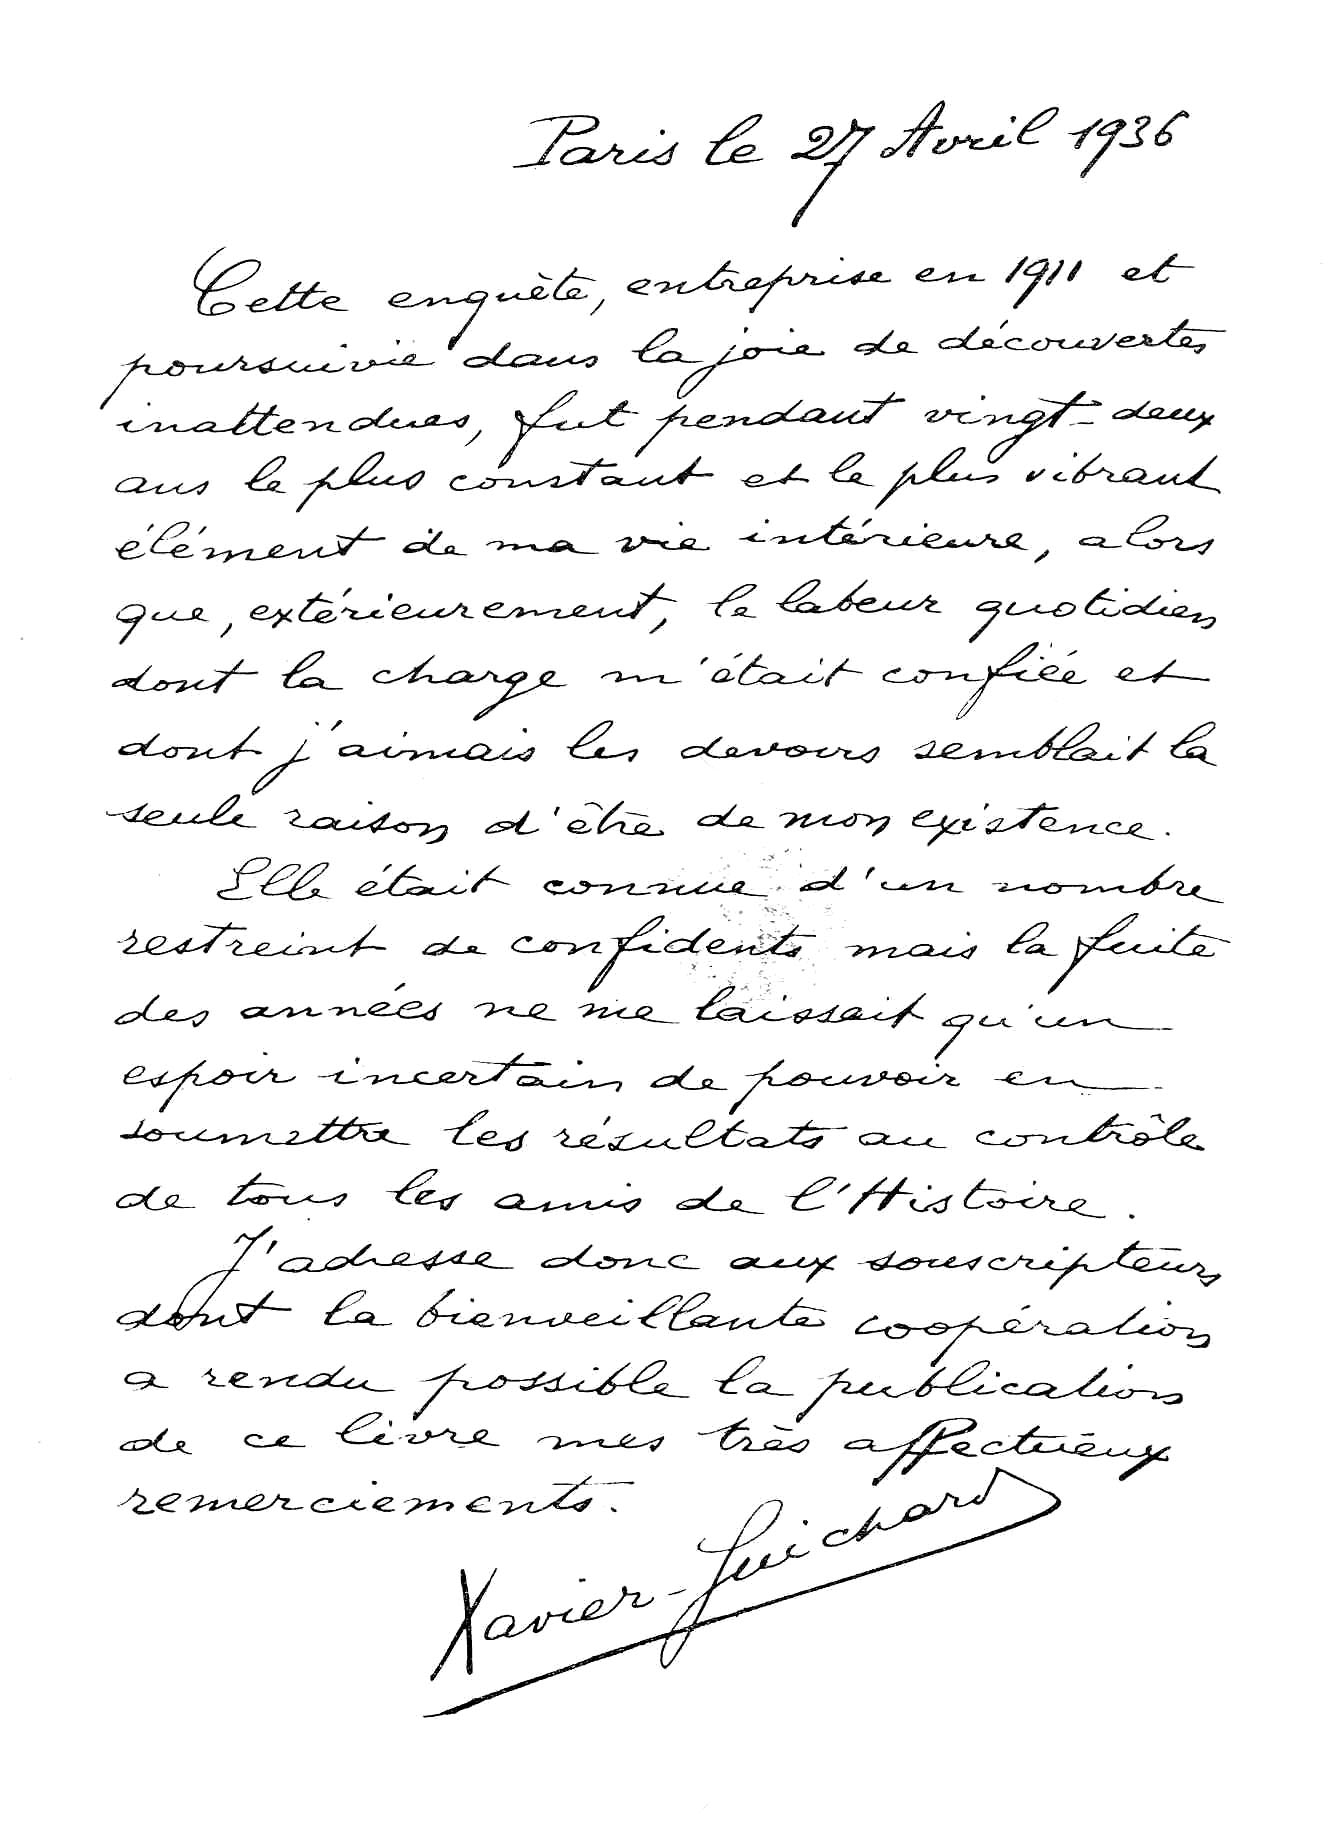 Paris le 27 Avril 1936
Cette enquête, entreprise en 1911 et
poursuivie dans la joie de découvertes
inattendues, fut pendant vingt-deux
ans le plus constant et le plus vibrant
élément de ma vie intérieure, alors
que, extérieurement, le labeur quotidien
dont la charge m'était confiée et
dont j'aimais les devoirs semblait la
seule raison d'être de mon existence.
Elle était connue d'un nombre
restreint de confidents mais la fuite
des années ne me laissait qu'un
espoir incertain de pouvoir en
soumettre les résultats au contrôle
de tous les amis de l'Histoire.
J'adresse donc aux souscripteurs
dont la bienveillante coopération
a rendu possible la publication
de ce livre mes très affectueux
remerciements.
Xavier-Guichard